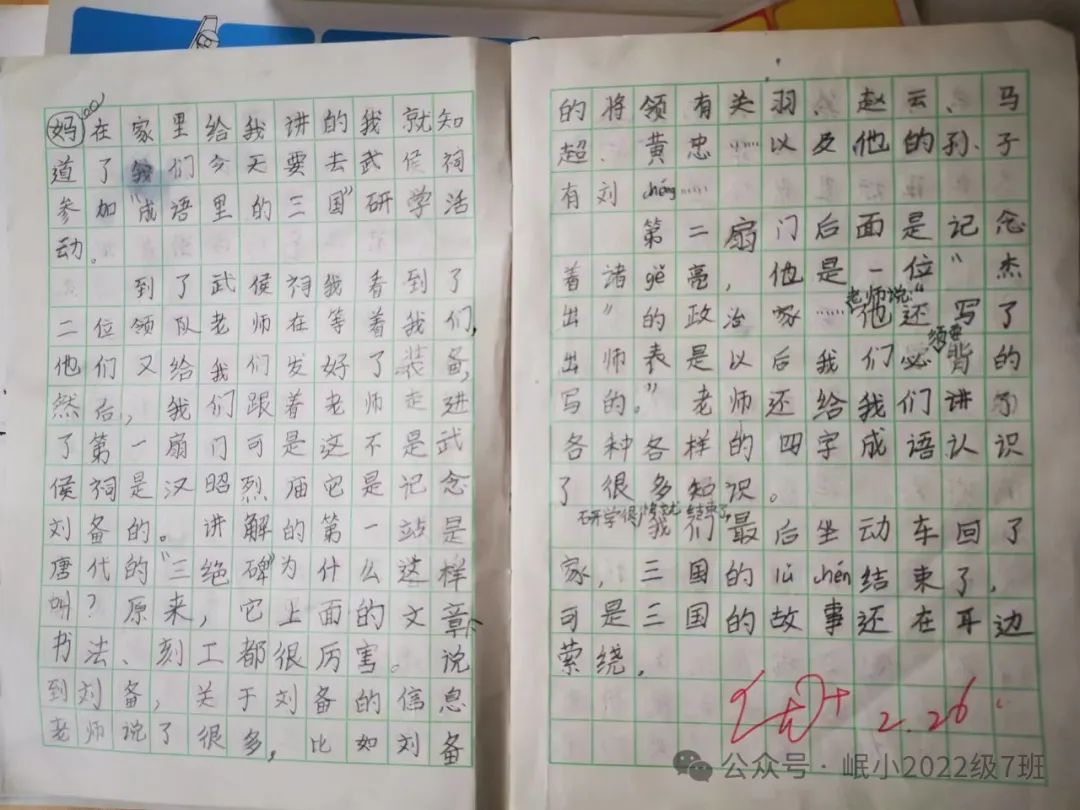 妈在家里给我讲的我就知
道了我们今天要去武侯祠
参加“成语里的三国”研学活
动。
到了武侯祠我看到了
二位领队老师在等着我们,
他们又给我们发好了装备,
然后,我们跟着老师走进
了第一扇门可是这不是武
侯祠是汉昭烈庙它是记念
刘备的。讲解的第一站是
唐代的“三绝碑”为什么这样
叫?原来,它上面的文章、
书法、刻工都很厉害。说
到刘备,关于刘备的信息
老师说了很多,比如刘备
的将领有关羽、赵云、马
超、黄忠……以及他的孙子
有刘chéng……
第二扇门后面是记念
着诸gě亮,他是一位“杰
出”的政治家……老师说:“他还写了
出师表是以后我们必须要背的
写的。”老师还给我们讲了
各种各样的四字成语认识
了很多知识。
研学很快就结束了,我们最后坐动车回了
家,三国的lǚ chén结束了,
可是三国的故事还在耳边
萦绕。
优+ 2.26
公众号·岷小2022级7班